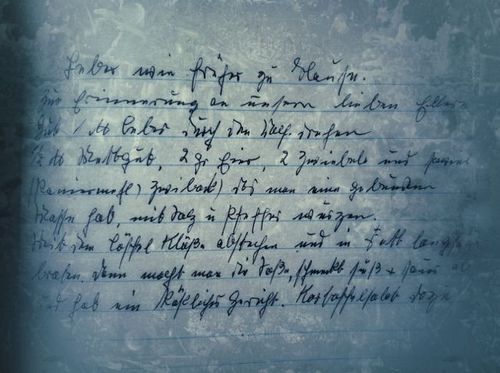 Leber wie früher zu Hause.
Zur Erinnerung an unsere lieben Eltern
1 ℔ Leber durch den Wolf drehen
½ ℔ Mettgut, 2 Eier, 2 Zwiebel und
(Paniermehl Zwieback) bis man eine gebunden
Masse hat, mit Salz u Pfeffer würzen.
Mit dem Löffel Klöße abstechen und in Fett langsam
braten. Dann macht man die Soße, schmeckt süß + sauer ab
und hat ein köstliches Gericht. Kartoffelsalat dazu